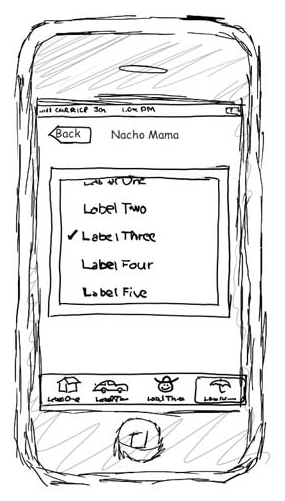 CARRIER 3G 1:04 PM
Back Nacho Mama
Label One
Label Two
Label Three
Label Four
Label Five
Label One Label Two Label Three Label